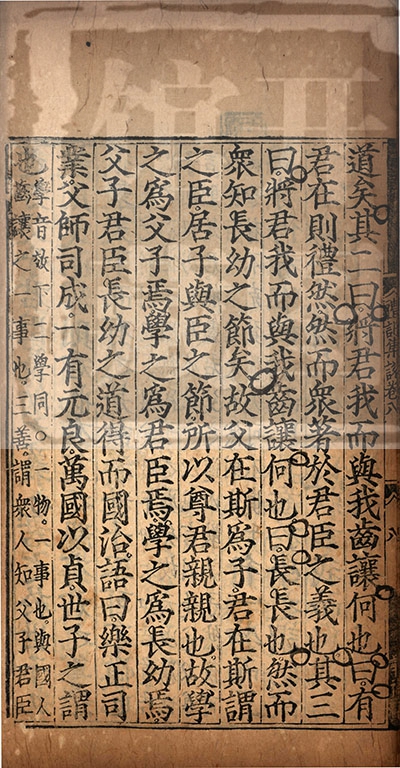 道矣其二曰將君我而與我齒讓何也曰有
君在則禮然然而衆著於君臣之義也其三
曰將君我而與我齒讓何也曰長長也然而
衆知長幼之節矣故父在斯爲子君在斯謂
之臣居子與臣之節所以尊君親親也故學
之爲父子焉學之爲君臣焉學之爲長幼焉
父子君臣長幼之道得而國治語曰樂正司
業父師司成一有元良萬國以貞世子之謂
也學音效下二學同○一物一事也與國人
齒讓之一事也三善謂衆人知父子君臣